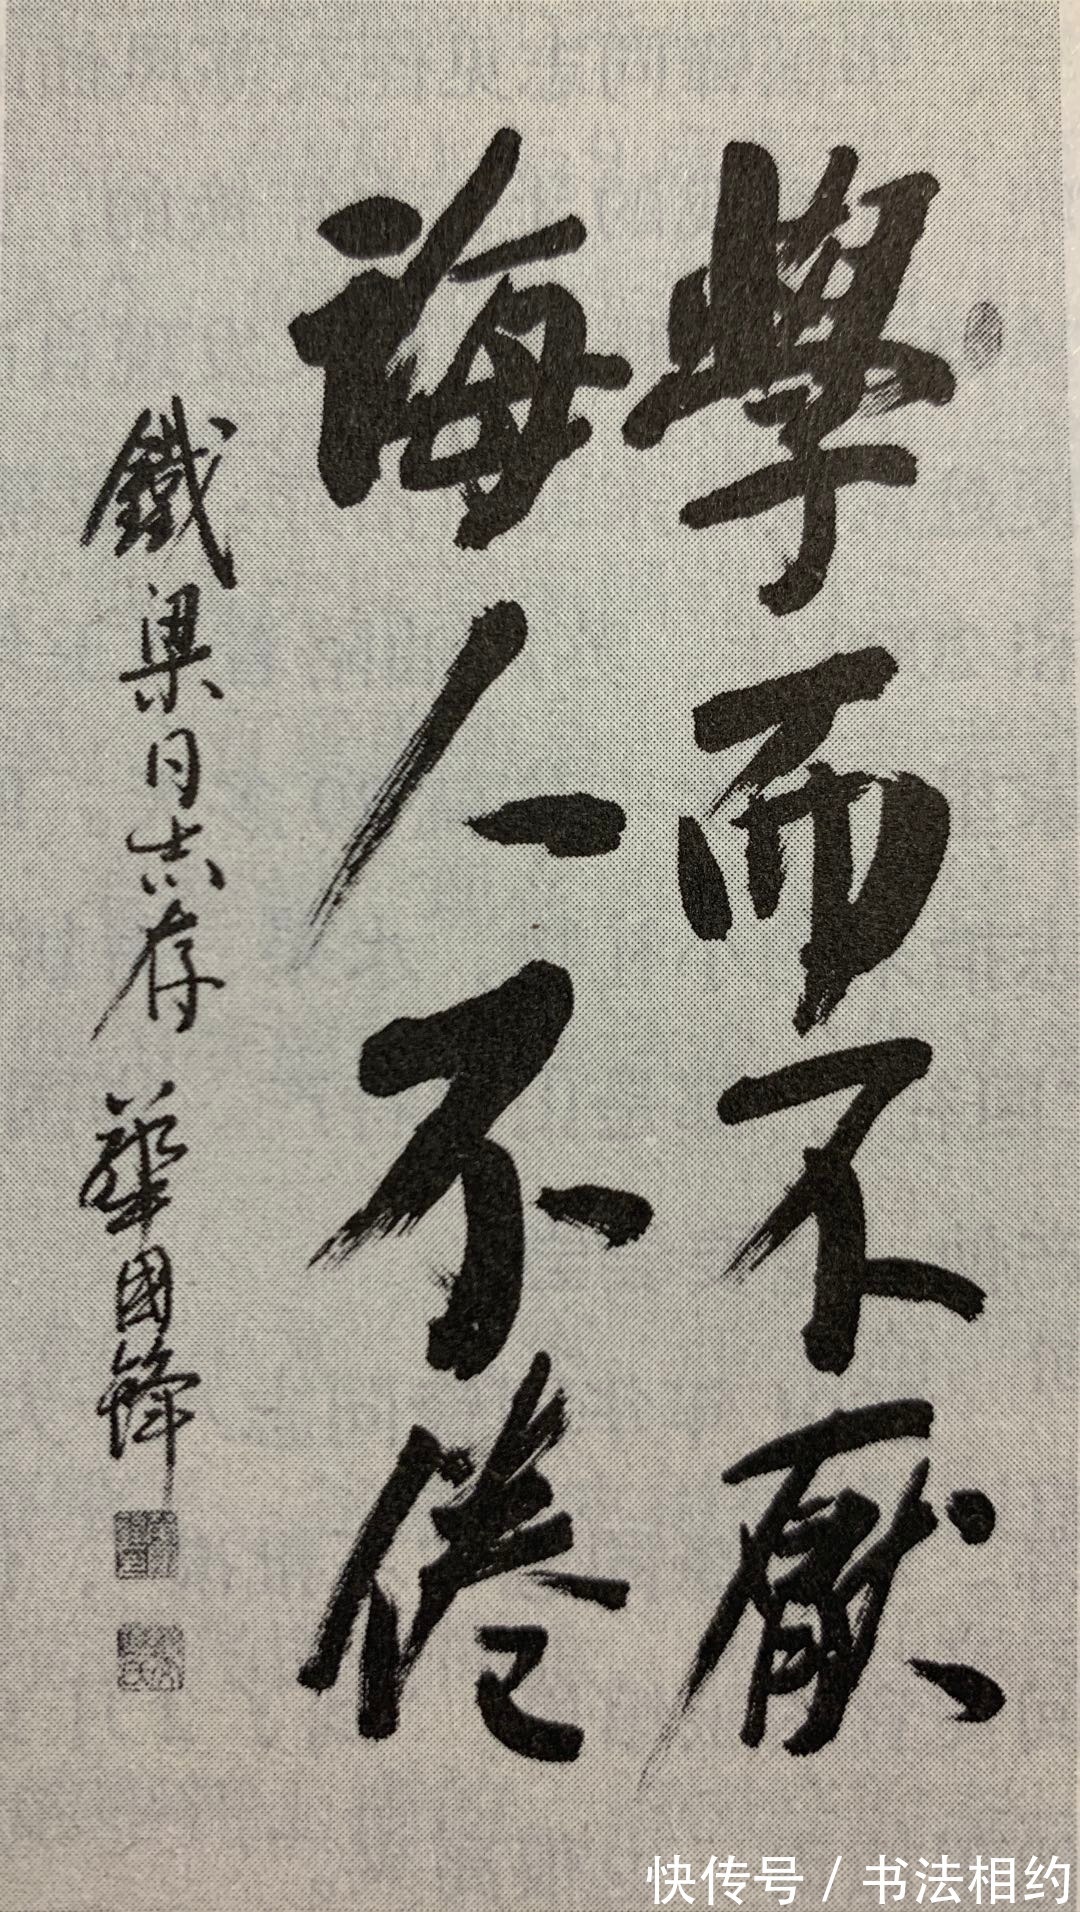 學而不厭
誨人不倦
鐵梁同志存
華國鋒
快传号 / 书法相约